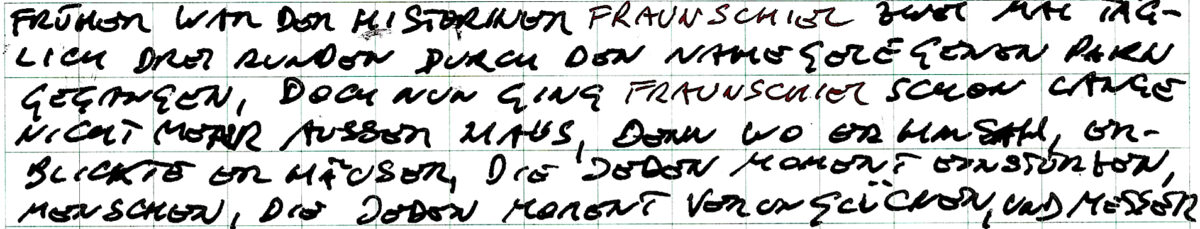 FRÜHER WAR DER HISTORIKER FRAUNSCHIEL ZWEI MAL TÄG-
LICH DREI RUNDEN DURCH DEN NAHEGELEGENEN PARK
GEGANGEN, DOCH NUN GING FRAUNSCHIEL SCHON LANGE
NICHT MEHR AUSSER HAUS, DENN WO ER HINSAH, ER-
BLICKTE ER HÄUSER, DIE JEDEN MOMENT EINSTÜRZEN,
MENSCHEN, DIE JEDEN MOMENT VERUNGLÜCKEN, UND MESSER